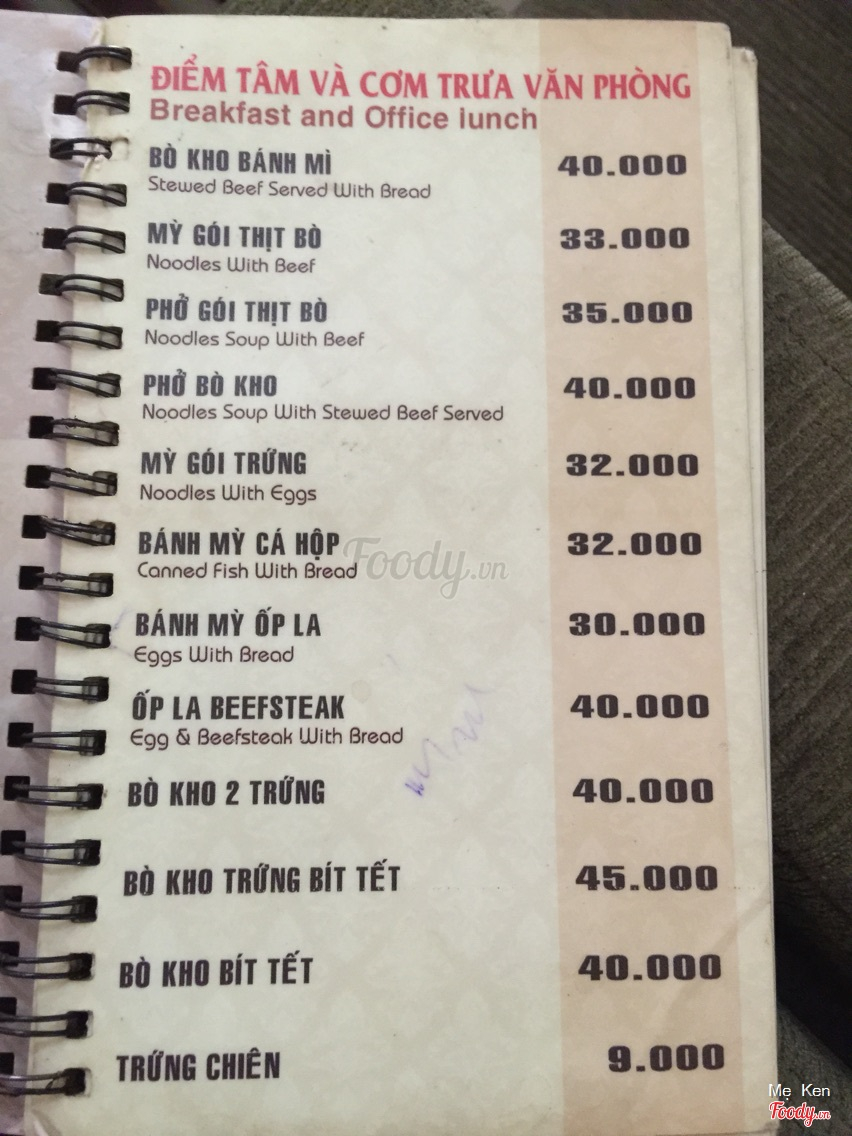 ĐIỂM TÂM VÀ CƠM TRƯA VĂN PHÒNG
Breakfast and Office iunch
BÒ KHO BÁNH MÌ 40.000
Stewed Beef Served With Bread
MỲ GÓI THỊT BÒ 33.000
Noodles With Beef
PHỞ GÓI THỊT BÒ 35.000
Noodles Soup With Beef
PHỞ BÒ KHO 40.000
Noodles Soup With Stewed Beef Served
MỲ GÓI TRỨNG 32.000
Noodles With Eggs
BÁNH MỲ CÁ HỘP 32.000
Canned Fish With Bread
Foody.vn
BÁNH MỲ ỐP LA 30.000
Eggs With Bread
ỐP LA BEEFSTEAK 40.000
Egg & Beefsteak With Bread
BÒ KHO 2 TRỨNG 40.000
BÒ KHO TRỨNG BÍT TẾT 45.000
BÒ KHO BÍT TẾT 40.000
TRỨNG CHIÊN 9.000
Mẹ Ken
Foody.vn